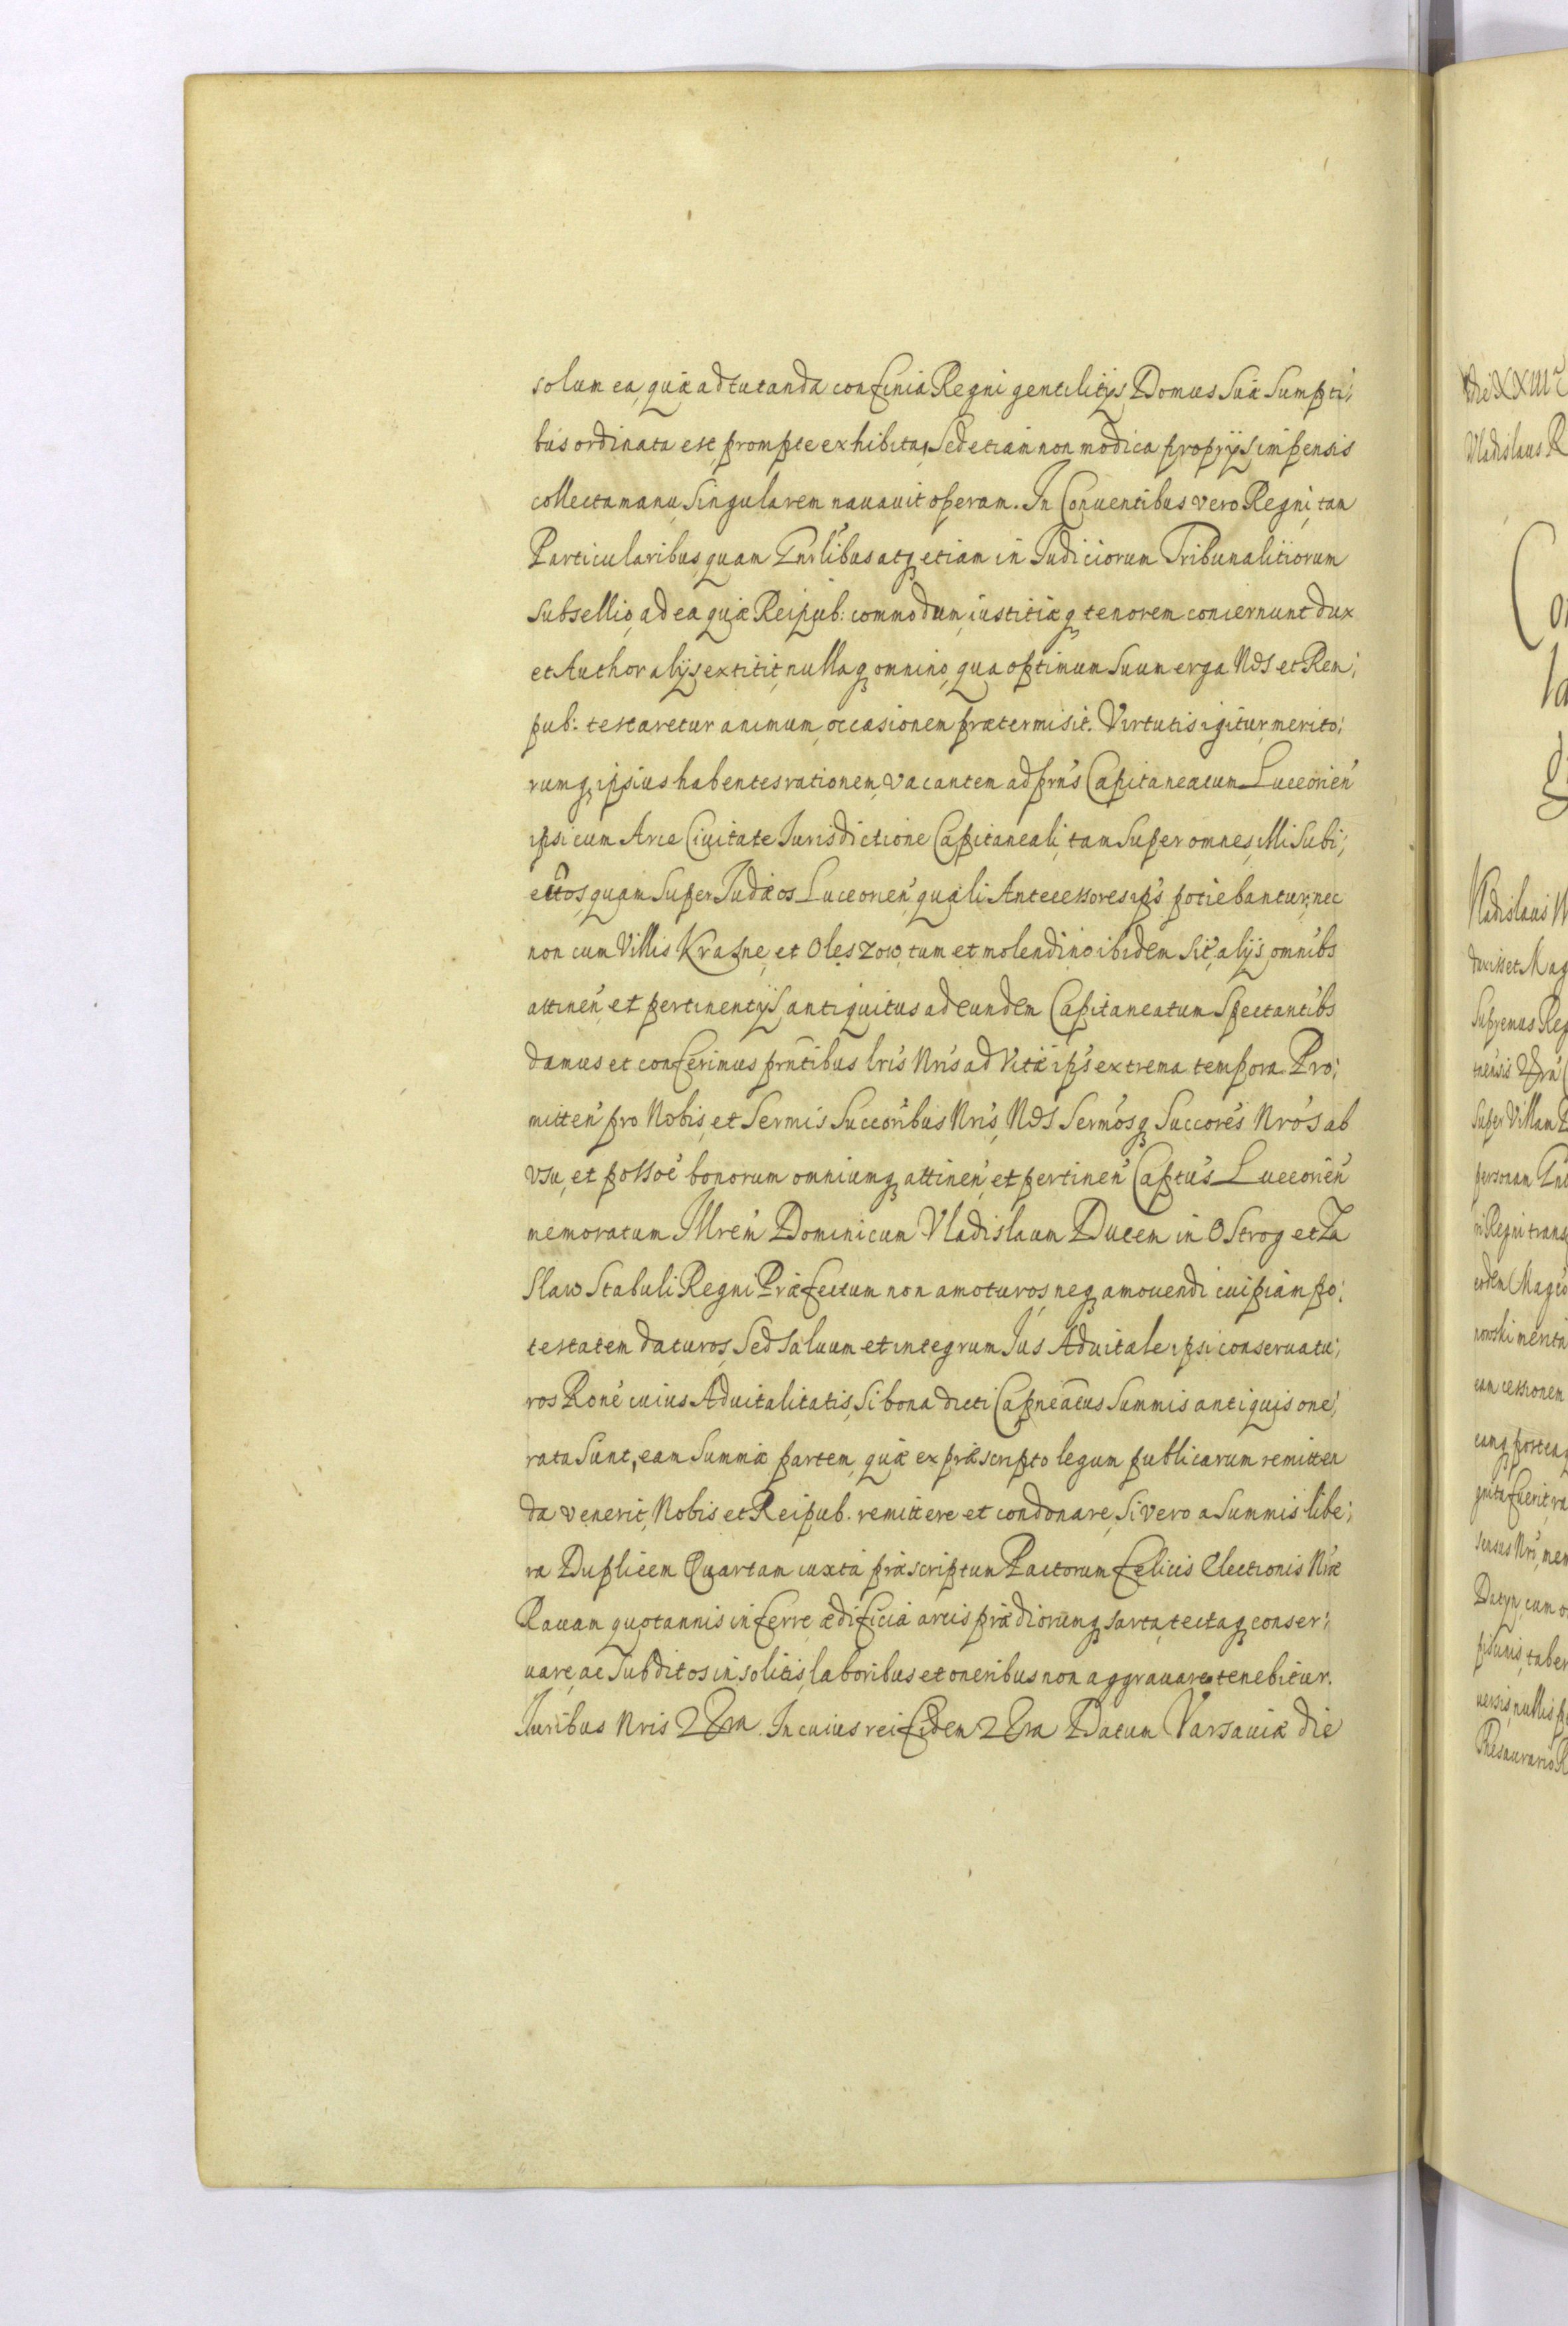 solum ea, quæ ad tutanda confinia Regni gentilitijs Domus Suæ Sumpti;
bus ordinata est, prompte exhibita, Sed etiam non modica proprijs impensis
collecta manu, Singularem nauauit operam. In Conuentibus vero Regni, tam
Particularibus, quam Gnrlibus atq etiam in Iudiciorum Tribunalitiorum
Subsellio, ad ea quæ Reipub: commodum, iustitiæq tenorem concernunt dux
et Author alijs extitit, nullaq omnino, qua optimum Suum erga Nos et Rem;
pub: testaretur animum, occasionem prætermisit. Virtutis igitur, merito;
rumq ipsius habentes rationem, vacantem ad prns Capitaneatum Luceorien
ipsi cum Arce Ciuitate Iurisdictione Capitaneali, tam Super omnes, illi Subi;
ectos, quam Super Iudæos Luceorien, quali Antecessores ips potiebantur, nec
non cum Villis Krasne, et Oleszow, tum et molendino ibidem Sit, alijs omnibs
attinen, et pertinentijs, antiquitus ad eundem Capitaneatum Spectantibs
damus et conferimus prntibus lris Nris ad Vitæ ips extrema tempora. Pro;
mitten pro Nobis, et Sermis Succoribus Nris, Nos Sermosq Succores Nros ab
vsu, et possoe bonorum omniumq attinen, et pertinen Captus Luceorien
memoratum Illrem Dominicum Vladislaum Ducem in Ostrog et Za
Slaw Stabuli Regni Præfectum non amoturos, neq amouendi cuipiam po;
testatem daturos, Sed Saluum et integrum Ius Aduitale ipsi conseruatu;
ros Rone cuius Aduitalitatis, Si bona dicti Capneatus Summis antiquis one;
rata Sunt, eam Summæ partem, quæ ex præscripto legum publicarum remitten
da venerit, Nobis et Reipub. remittere et condonare, Si vero a Summis libe;
ra Duplicem Quartam iuxta præscriptum Pactorum felicis Electionis Nræ
Rauam quotannis inferre, ædificia arcis prædiorumq sarta, tectaq conser;
uare, ac Subditos insolitis, laboribus et oneribus non aggrauare tenebitur.
Iuribus Nris &. In cuius rei fidem & Datum Varsauiæ die
Vladislaus R
Vladislaus
Supremus Reg
Super Villam
personam
ni Regni trans
nowski merita
eam cessionem
Datyn, cum o